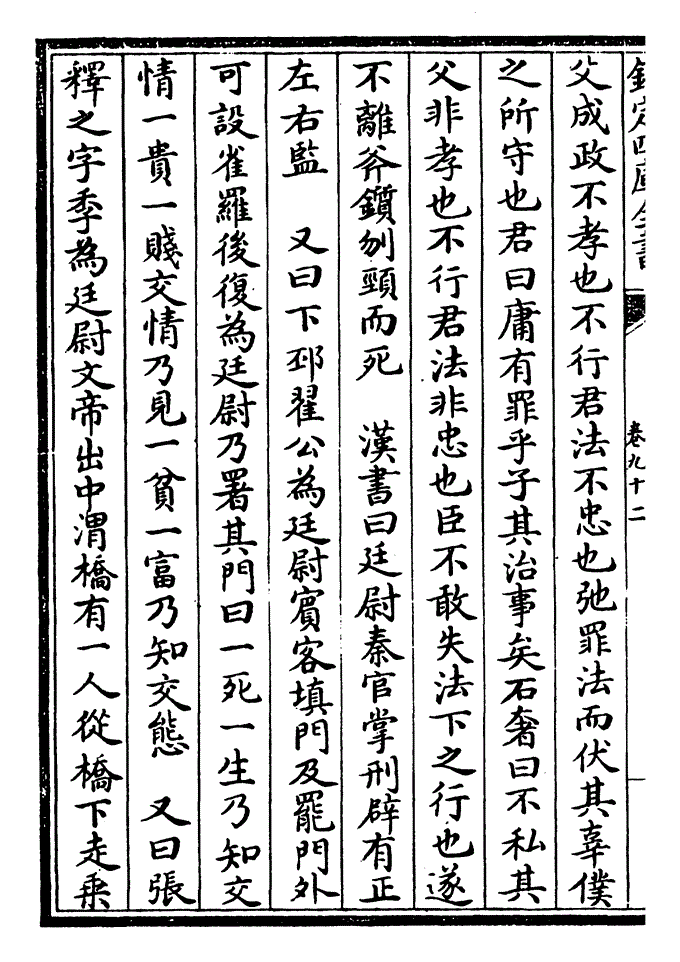 欽定四庫全書
卷九十二
父成政不孝也不行君法不忠也弛罪法而伏其辜僕
之所守也君曰庸有罪乎子其治事矣石奢曰不私其
父非孝也不行君法非忠也臣不敢失法下之行也遂
不離斧鑕刎頸而死　漢書曰廷尉秦官掌刑辟有正
左右監　又曰下邳翟公為廷尉賓客填門及罷門外
可設雀羅後復為廷尉乃署其門曰一死一生乃知交
情一貴一賤交情乃見一貧一富乃知交態　又曰張
釋之字季為廷尉文帝出中渭橋有一人從橋下走乘